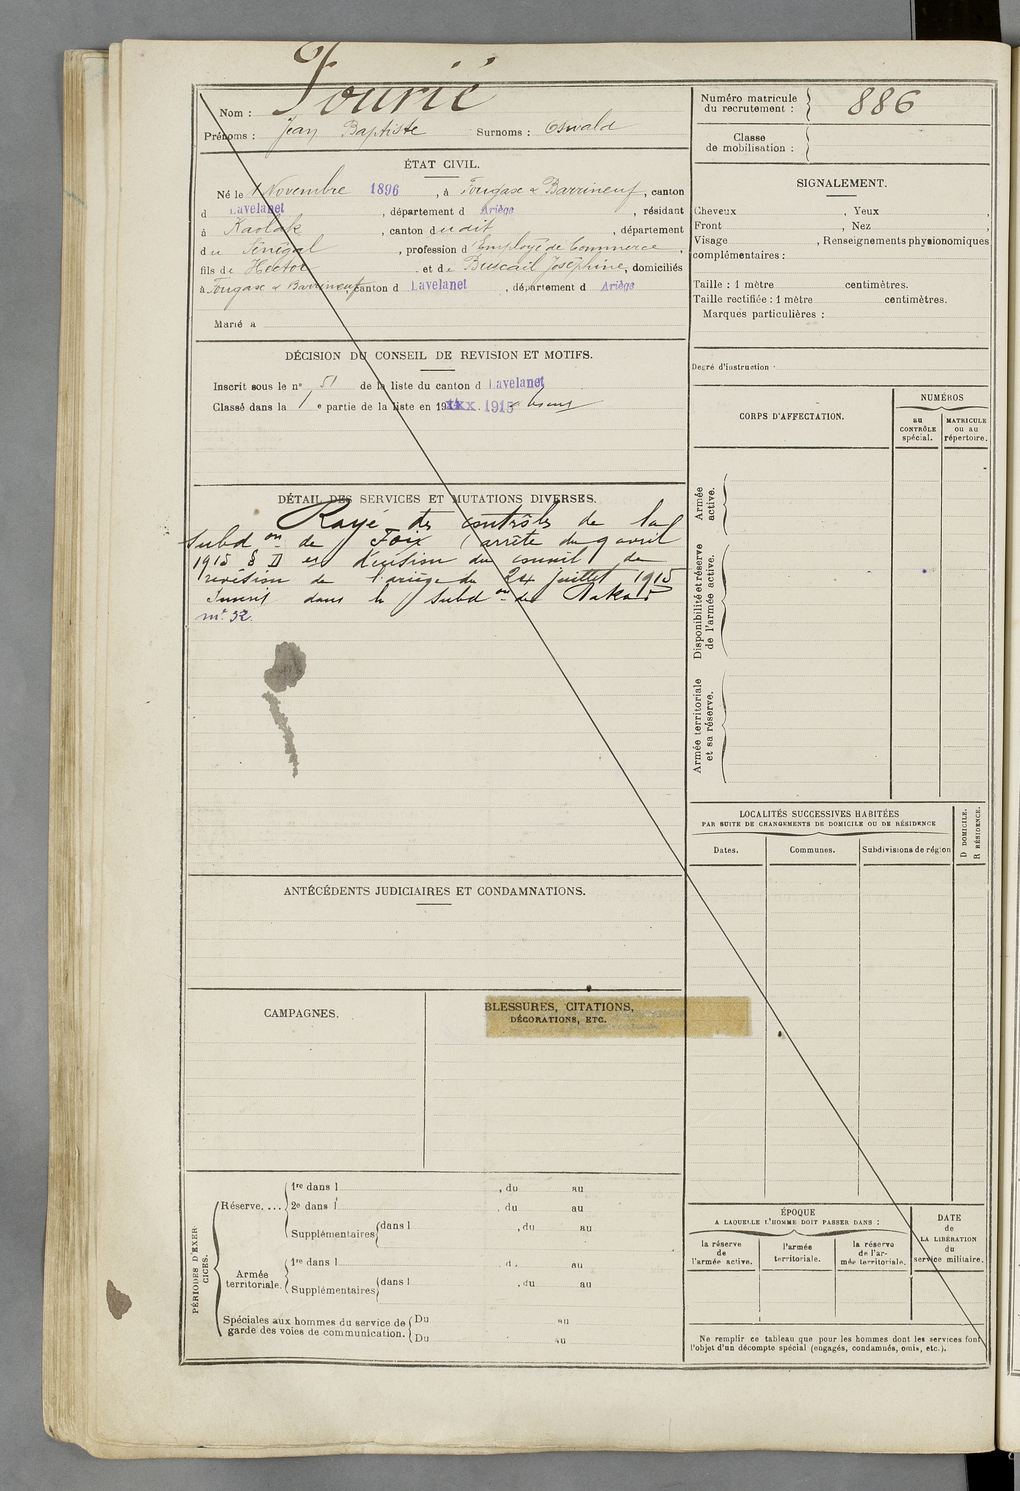 Nom : Fourié
Prénoms : Jean Baptiste Surnoms : Oswald
ÉTAT CIVIL.
Né le 1 Novembre 1896, à Fougax & Barrineuf, canton
d Lavelanet, département d Ariège, résidant
à Kaolak, canton dudit, département
du Sénégal, profession d'employé de Commerce,
fils de Hector et de Buscail Joséphine, domiciliés
à Fougax & Barrineuf canton d Lavelanet, département d Ariège
Marié à
DÉCISION DU CONSEIL DE REVISION ET MOTIFS.
Inscrit sous le nº 51 de la liste du canton d Lavelanet
Classé dans la 1e partie de la liste en 19 1915
DÉTAIL DES SERVICES ET MUTATIONS DIVERSES.
Rayé des contrôles de la
Subdon de Foix (arrêté du 9 avril
1915 § II et décision du conseil de
revision de l'ariège du 24 juillet 1915
Inscrit dans la Subdon de Dakar
nº 52.
ANTÉCÉDENTS JUDICIAIRES ET CONDAMNATIONS.
CAMPAGNES.
BLESSURES, CITATIONS,
DÉCORATIONS, ETC.
PÉRIODES D'EXERCICES.
Réserve....
1re dans l , du au
2e dans l , du au
Supplémentaires dans l , du au
Armée territoriale.
1re dans l du au
Supplémentaires dans l , du au
Spéciales aux hommes du service de Du au
garde des voies de communication. Du au
Numéro matricule
du recrutement : 886
Classe
de mobilisation :
SIGNALEMENT.
Cheveux , Yeux ,
Front , Nez ,
Visage , Renseignements physionomiques
complémentaires :
Taille : 1 mètre centimètres.
Taille rectifiée : 1 mètre centimètres.
Marques particulières :
Degré d'instruction
CORPS D'AFFECTATION.
NUMÉROS
au
CONTRÔLE
spécial.
MATRICULE
ou au
répertoire.
Armée
active.
Disponibilité et réserve
de l'armée active.
Armée territoriale
et sa réserve.
LOCALITÉS SUCCESSIVES HABITÉES
PAR SUITE DE CHANGEMENTS DE DOMICILE OU DE RÉSIDENCE
D DOMICILE.
R RÉSIDENCE.
Dates. Communes. Subdivisions de région
ÉPOQUE
A LAQUELLE L'HOMME DOIT PASSER DANS :
la réserve
de
l'armée active.
l'armée
territoriale.
la réserve
de l'ar-
mée territoriale.
DATE
de
LA LIBÉRATION
du
service militaire.
Ne remplir ce tableau que pour les hommes dont les services font
l'objet d'un décompte spécial (engagés, condamnés, omis, etc.).